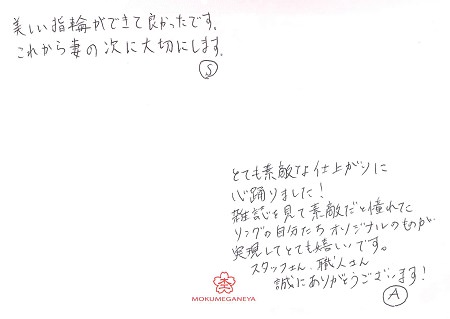 美しい指輪ができて良かったです。
これから妻の次に大切にします。
S
とても素敵な仕上がりに
心踊りました！
雑誌を見て素敵だと憧れてた
リングの自分たちオリジナルのものが、
実現してとても嬉しいです。
スタッフさん、職人さん
誠にありがとうございます！
A
MOKUMEGANEYA